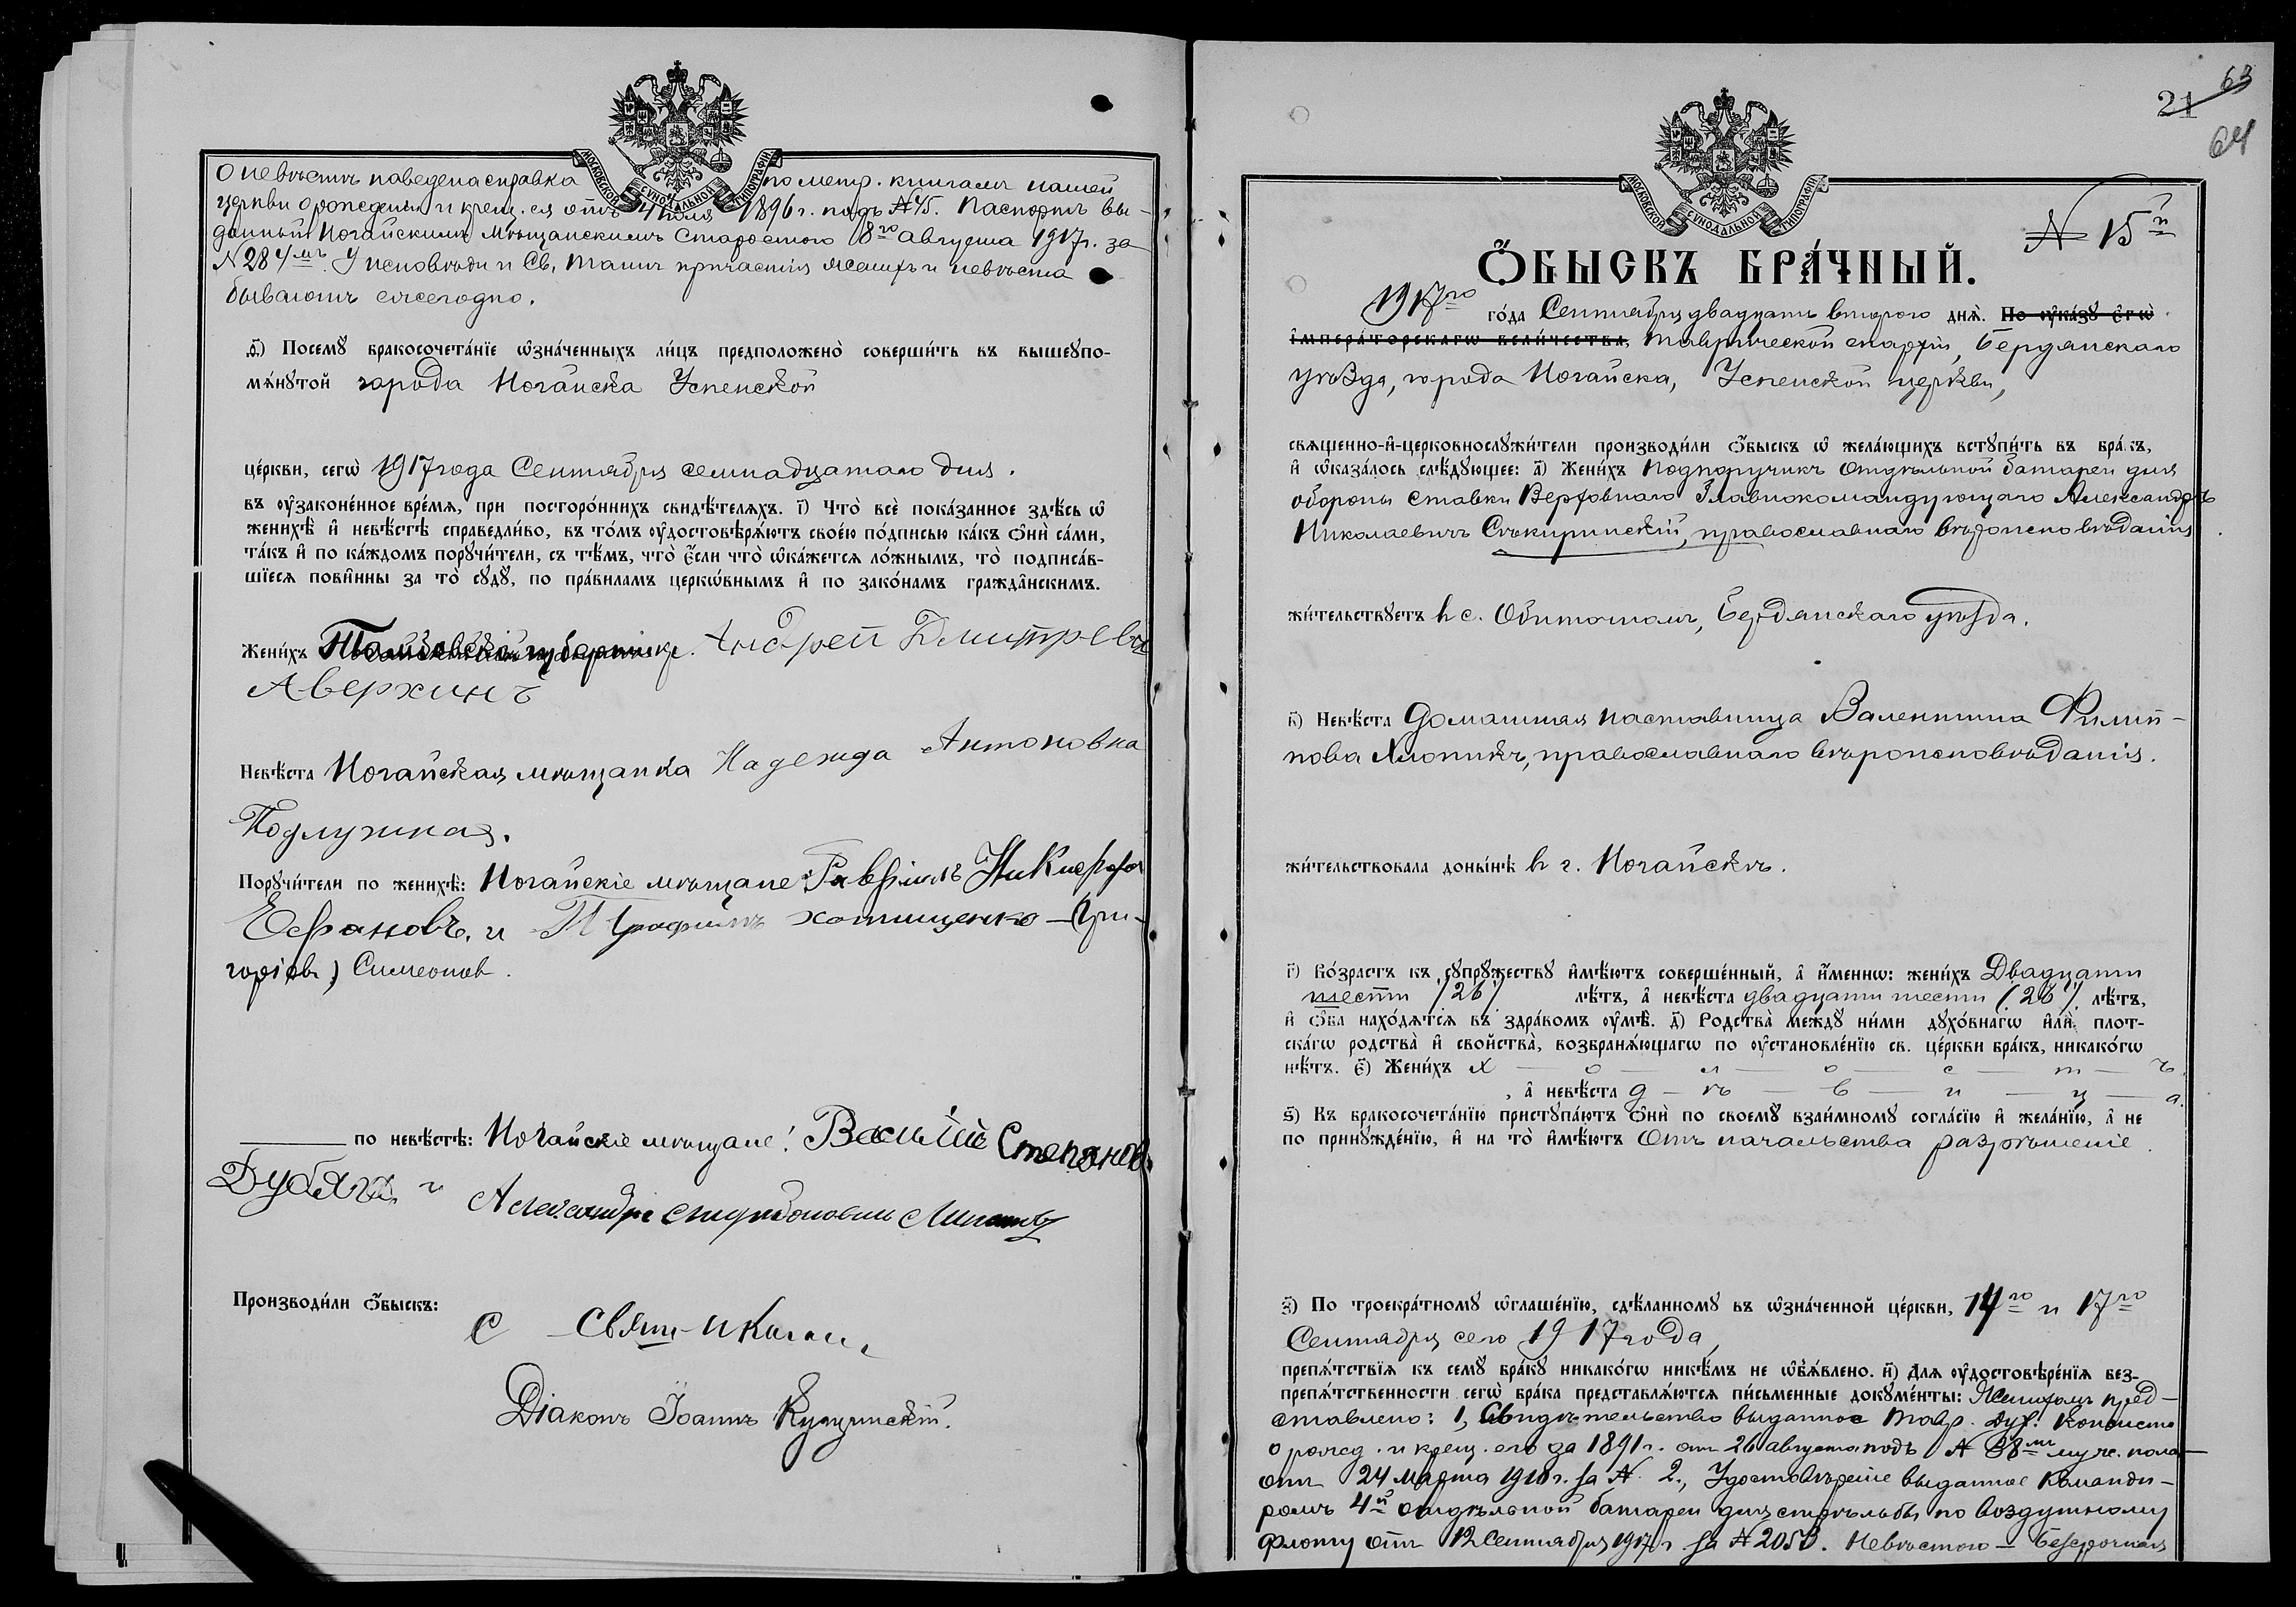 МОСКОВСКОЙ СѴНОДАЛЬНОЙ ТИПОГРАФІИ.
О невѣстѣ наведена справка по метр. книгамъ нашей
церкви о рожденіи и крещ. ея отъ 4 Іюля 1896 г. подъ № 45. Паспортъ вы-
данный Ногайскимъ Мѣщанскимъ Старостою 8го Августа 1917 г. за
№ 284мъ. У исповѣди и Св. Таинъ причастія женихъ и невѣста
бываютъ ежегодно.
д҃) Посемꙋ̀ бракосочета́нїе ѡ҆зна́ченныхъ ли́цъ предположено̀ соверши́ть въ вышеꙋпо-
мѧ́нꙋтой города Ногайска Успенской
це́ркви, сегѡ̀ 1917 года Сентября семнадцатаго дня.
въ ᲂу҆законе́нное вре́мѧ, при посторо́ннихъ свидѣ́телѧхъ. і҃) Что̀ всѐ пока́занное здѣ́сь ѡ҆
женихѣ̀ и҆ невѣ́стѣ справедли́во, въ то́мъ ᲂу҆достовѣрѧ́ютъ свое́ю по́дписью ка́къ ѻ҆нѝ са́ми,
та́къ и҆ по ка́ждомъ порꙋчи́тели, съ тѣ́мъ, что̀ є҆́сли что̀ ѡ҆ка́жетсѧ ло́жнымъ, то̀ подписа́в-
шїесѧ пови́нны за то̀ сꙋдꙋ̀, по пра́виламъ церкѡ́внымъ и҆ по зако́намъ гражда́нскимъ.
Жени́хъ Андрей Дмитревъ
Аверкинъ
Невѣ́ста Ногайская мѣщанка Надежда Антоновна
Подлужная.
Порꙋчи́тели по женихѣ̀: Ногайскіе мѣщане: Гавріилъ
Ефановъ. и Трофимъ хотищенко — (Гри-
горіевъ) Симеонов.
по невѣ́стѣ: Ногайскіе мѣщане: Василій Степановъ
Дубяга и
Александръ
Производи́ли ѻ҆́быскъ:
Діаконъ Іоаннъ
21 63
64
МОСКОВСКОЙ СѴНОДАЛЬНОЙ ТИПОГРАФІИ.
№ 15й
Ѻ҆́БЫСКЪ БРА́ЧНЫЙ.
1917го го́да Сентября двадцать второго днѧ̀. По ᲂу҆ка́зꙋ є҆гѡ̀
і҆мпера́торскагѡ вели́чества, Таврической епархіи, Бердянскаго
уѣзда, города Ногайска, Успенской церкви,
свѧще́нно-и҆-церковнослꙋжи́тели производи́ли ѻ҆́быскъ ѡ҆ жела́ющихъ встꙋпи́ть въ бра́къ,
и҆ ѡ҆каза́лось слѣ́дꙋющее: а҃) Жени́хъ Подпоручикъ Отдѣльной батареи для
обороны ставки Верховнаго Главнокомандующаго Александръ
Николаевичъ Сѣкиринскій, православнаго вѣроисповѣданія
жи́тельствꙋетъ въ с. Обиточномъ, Бердянскаго уѣзда.
в҃) Невѣ́ста домашняя наставница Валентина Филип-
пова Хлопикъ, православнаго вѣроисповѣданія.
жи́тельствовала доны́нѣ въ г. Ногайскѣ.
г҃) Во́зрастъ къ сꙋпрꙋ́жествꙋ и҆мѣ́ютъ соверше́нный, а҆ и҆́меннѡ: жени́хъ Двадцати
шести /26/ лѣ́тъ, а҆ невѣ́ста двадцати шести /26/ лѣ́тъ,
и҆ ѻ҆́ба нахо́дѧтсѧ въ здра́вомъ ᲂу҆мѣ̀. д҃) Родства̀ междꙋ̀ ни́ми дꙋхо́внагѡ и҆лѝ плот-
ска́гѡ родства̀ и҆ свойства̀, возбранѧ́ющагѡ по ᲂу҆становле́нїю св. це́ркви бра́къ, никако́гѡ
нѣ́тъ. є҃) Жени́хъ х — о — л — о — с — т — ъ,
а҆ невѣ́ста д — ѣ — в — и — ц — а.
ѕ҃) Къ бракосочета́нїю пристꙋпа́ютъ ѻ҆нѝ по своемꙋ̀ взаи́мномꙋ согла́сїю и҆ жела́нїю, а҆ не
по принꙋжде́нїю, и҆ на то̀ и҆мѣ́ютъ Отъ начальства разрѣшеніе.
з҃) По троекра́тномꙋ ѡ҆глаше́нїю, сдѣ́ланномꙋ въ ѡ҆зна́ченной це́ркви, 14го и 17го
Сентября сего 1917 года,
препѧ́тствїѧ къ семꙋ̀ бра́кꙋ никако́гѡ никѣ́мъ не ѡ҆б̾ѧ́влено. и҃) Длѧ ᲂу҆достовѣре́нїѧ без-
препѧ́тственности сегѡ̀ бра́ка представлѧ́ютсѧ пи́сьменные докꙋме́нты: Женихомъ пред-
ставлено: 1, Свидѣтельство выданное Тавр. Дух. Консист.
о рожд. и крещ. его за 1891 г. отъ 26 августа подъ № 38мъ муж. пола
отъ 24 марта 1910 г. за № 2., Удостовѣреніе выданное Команди-
ромъ 4й отдѣльной батареи для стрѣльбы по воздушному
флоту отъ 12 Сентября 1917 г. за № 2053. Невѣстою — Безсрочная